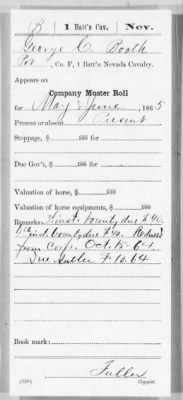 B | 1 Batt'n Cav. | Nev.
George C. Booth
Pvt, Co. F, 1 Batt'n Nevada Cavalry.
Appears on
Company Muster Roll
for May & June, 1865
Present or absent Present
Stoppage, $ 100 for
Due Gov't, $ 100 for
Valuation of horse, $ 100
Valuation of horse equipments, $ 100
Remarks: Inst. bounty due $40.
Inst. bounty due $40. Reduced
from Corp. Oct. 15-64
Due Sutler $10.64
Book mark:
Fuller
(358) Copyist.